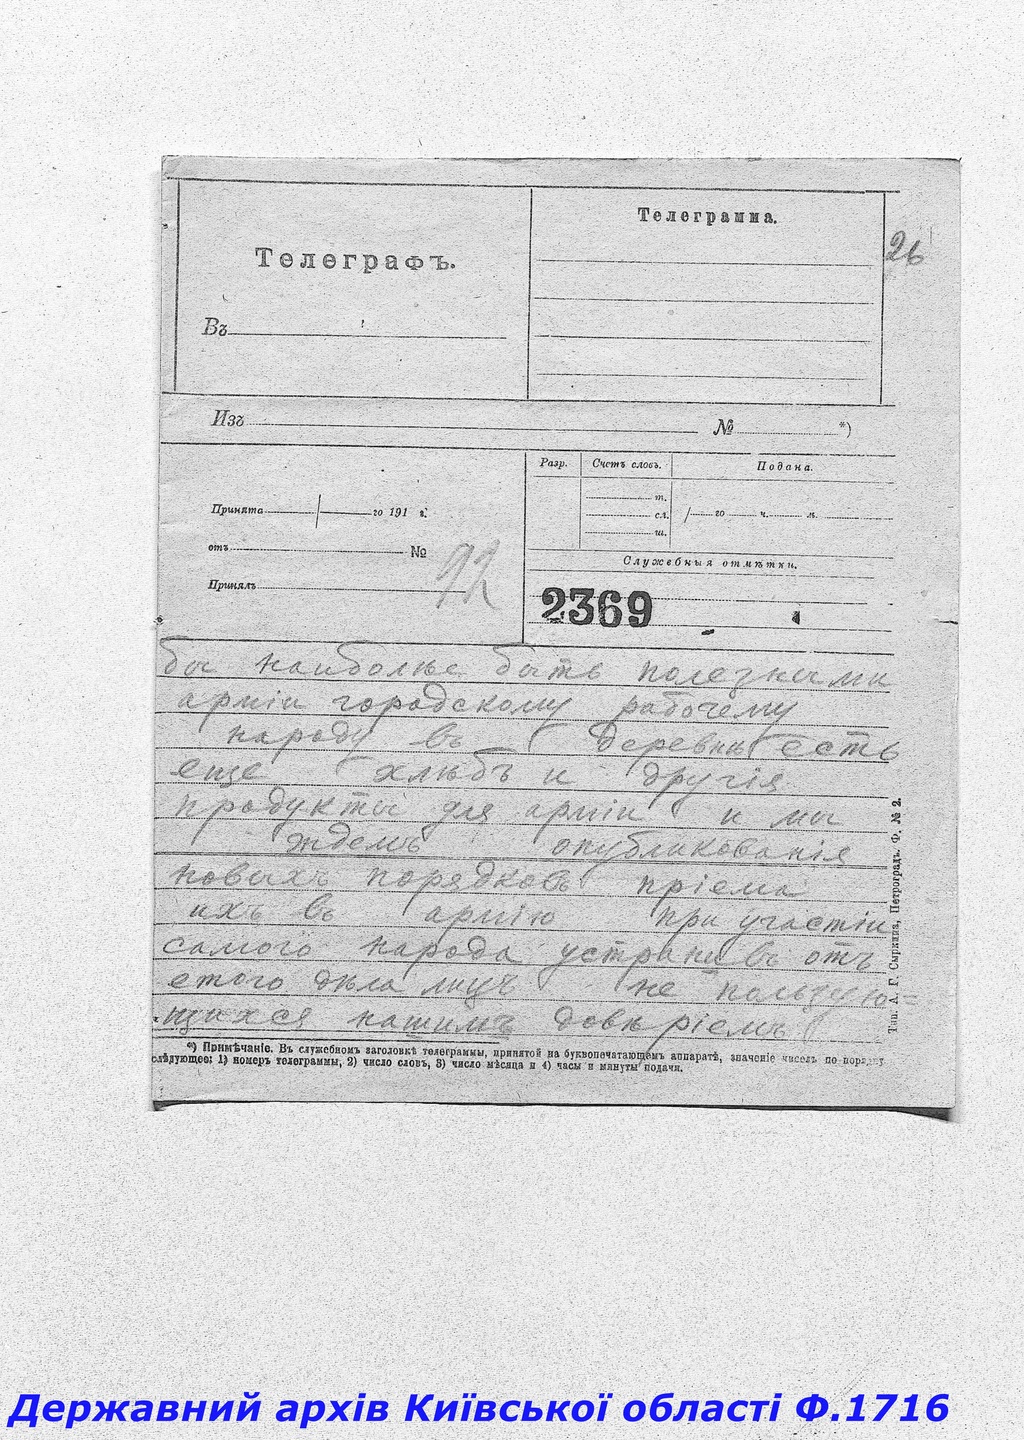 Телеграмма.
26
Телеграфъ.
Въ
Изъ № *)
Разр. Счетъ словъ. Подана.
т.
Принята го 191 г.
сл. го ч. м.
ш.
отъ №
92
Служебныя отмѣтки.
Принялъ
2369
бы наиболѣе быть полезными
арміи городскому рабочему
народу въ деревнѣ есть
еще хлѣбъ и другія
продукты для арміи и мы
ждемъ опубликованія
новыхъ порядковъ пріема
ихъ въ армію при участіи
самого народа устранивъ отъ
етого дѣла лицъ не пользую=
щихся нашимъ довѣріемъ
*) Примѣчаніе. Въ служебномъ заголовкѣ телеграммы, принятой на буквопечатающемъ аппаратѣ, значеніе чиселъ по порядку
слѣдующее: 1) номеръ телеграммы, 2) число словъ, 3) число мѣсяца и 4) часы и минуты подачи.
Тип. А. Г. Сыркина, Петроградъ. Ф. № 2.
Державний архів Київської області Ф.1716